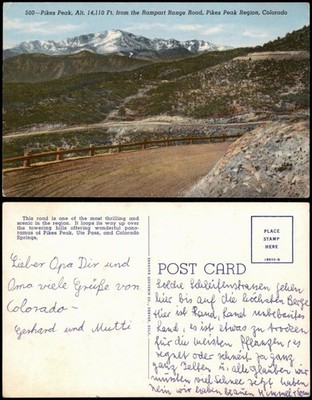 500—Pikes Peak, Alt. 14,110 Ft, from the Rampart Range Road, Pikes Peak Region, Colorado
This road is one of the most thrilling and
scenic in the region. It loops its way up over
the towering hills offering wonderful pano-
ramas of Pikes Peak, Ute Pass, and Colorado
Springs.
PLACE
STAMP
HERE
POST CARD
Lieber Opa Dir und
Oma viele Grüße von
Colorado –
Gerhard und Mutti
Solche gehen
hier bis auf die höchsten Berge
Hier ist Land, Land
Land, es ist etwas zu trocken
für die meisten Pflanzen, es
regnet oder schneit ja ganz
ganz selten u. alle glauben wir
müssten viel Schnee jetzt haben
nein wir haben blauen Himmel